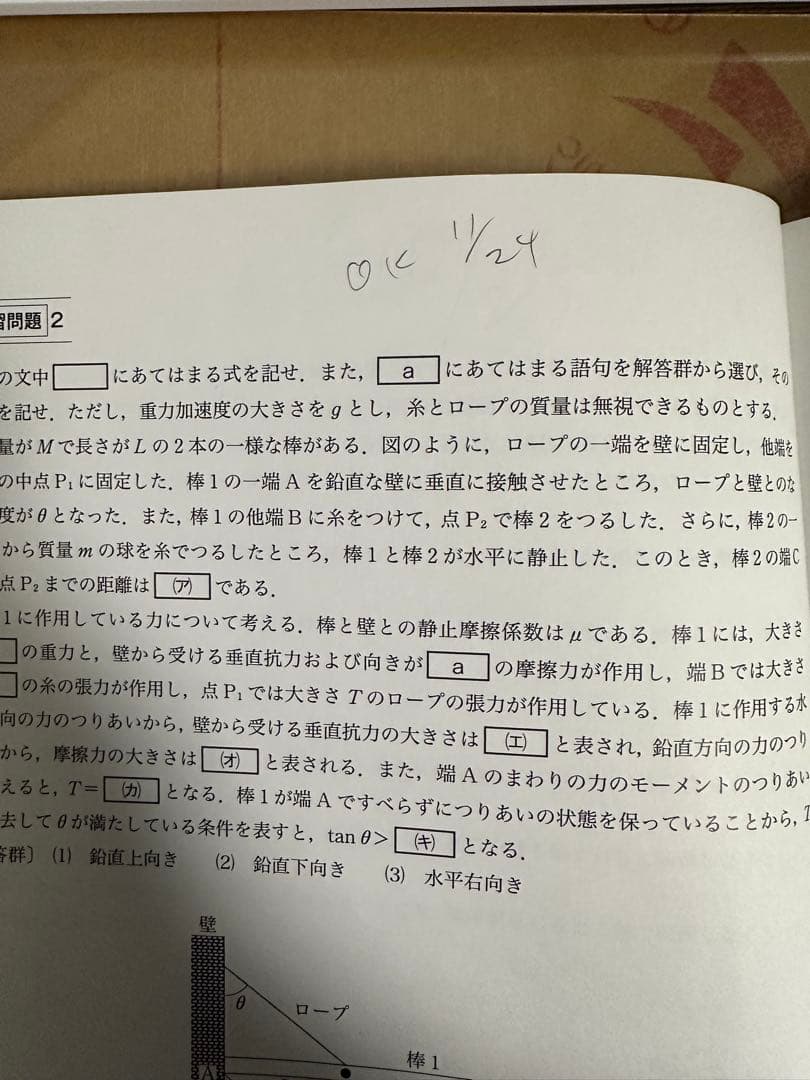 OK 11/24
習問題 2
の文中 にあてはまる式を記せ．また， a にあてはまる語句を解答群から選び，その
を記せ．ただし，重力加速度の大きさを g とし，糸とロープの質量は無視できるものとする．
量が M で長さが L の2本の一様な棒がある．図のように，ロープの一端を壁に固定し，他端を
の中点 P₁ に固定した．棒1の一端 A を鉛直な壁に垂直に接触させたところ，ロープと壁とのな
度が θ となった．また，棒1の他端 B に糸をつけて，点 P₂ で棒2をつるした．さらに，棒2の一
から質量 m の球を糸でつるしたところ，棒1と棒2が水平に静止した．このとき，棒2の端C
点 P₂ までの距離は (ア) である．
1に作用している力について考える．棒と壁との静止摩擦係数は μ である．棒1には，大きさ
の重力と，壁から受ける垂直抗力および向きが a の摩擦力が作用し，端 B では大きさ
の糸の張力が作用し，点 P₁ では大きさ T のロープの張力が作用している．棒1に作用する水
向の力のつりあいから，壁から受ける垂直抗力の大きさは (エ) と表され，鉛直方向の力のつり
から，摩擦力の大きさは (オ) と表される．また，端 A のまわりの力のモーメントのつりあい
えると，T＝ (カ) となる．棒1が端 A ですべらずにつりあいの状態を保っていることから，T
去して θ が満たしている条件を表すと，tan θ＞ (キ) となる．
答群〕 (1) 鉛直上向き (2) 鉛直下向き (3) 水平右向き
壁
θ
ロープ
棒1
A